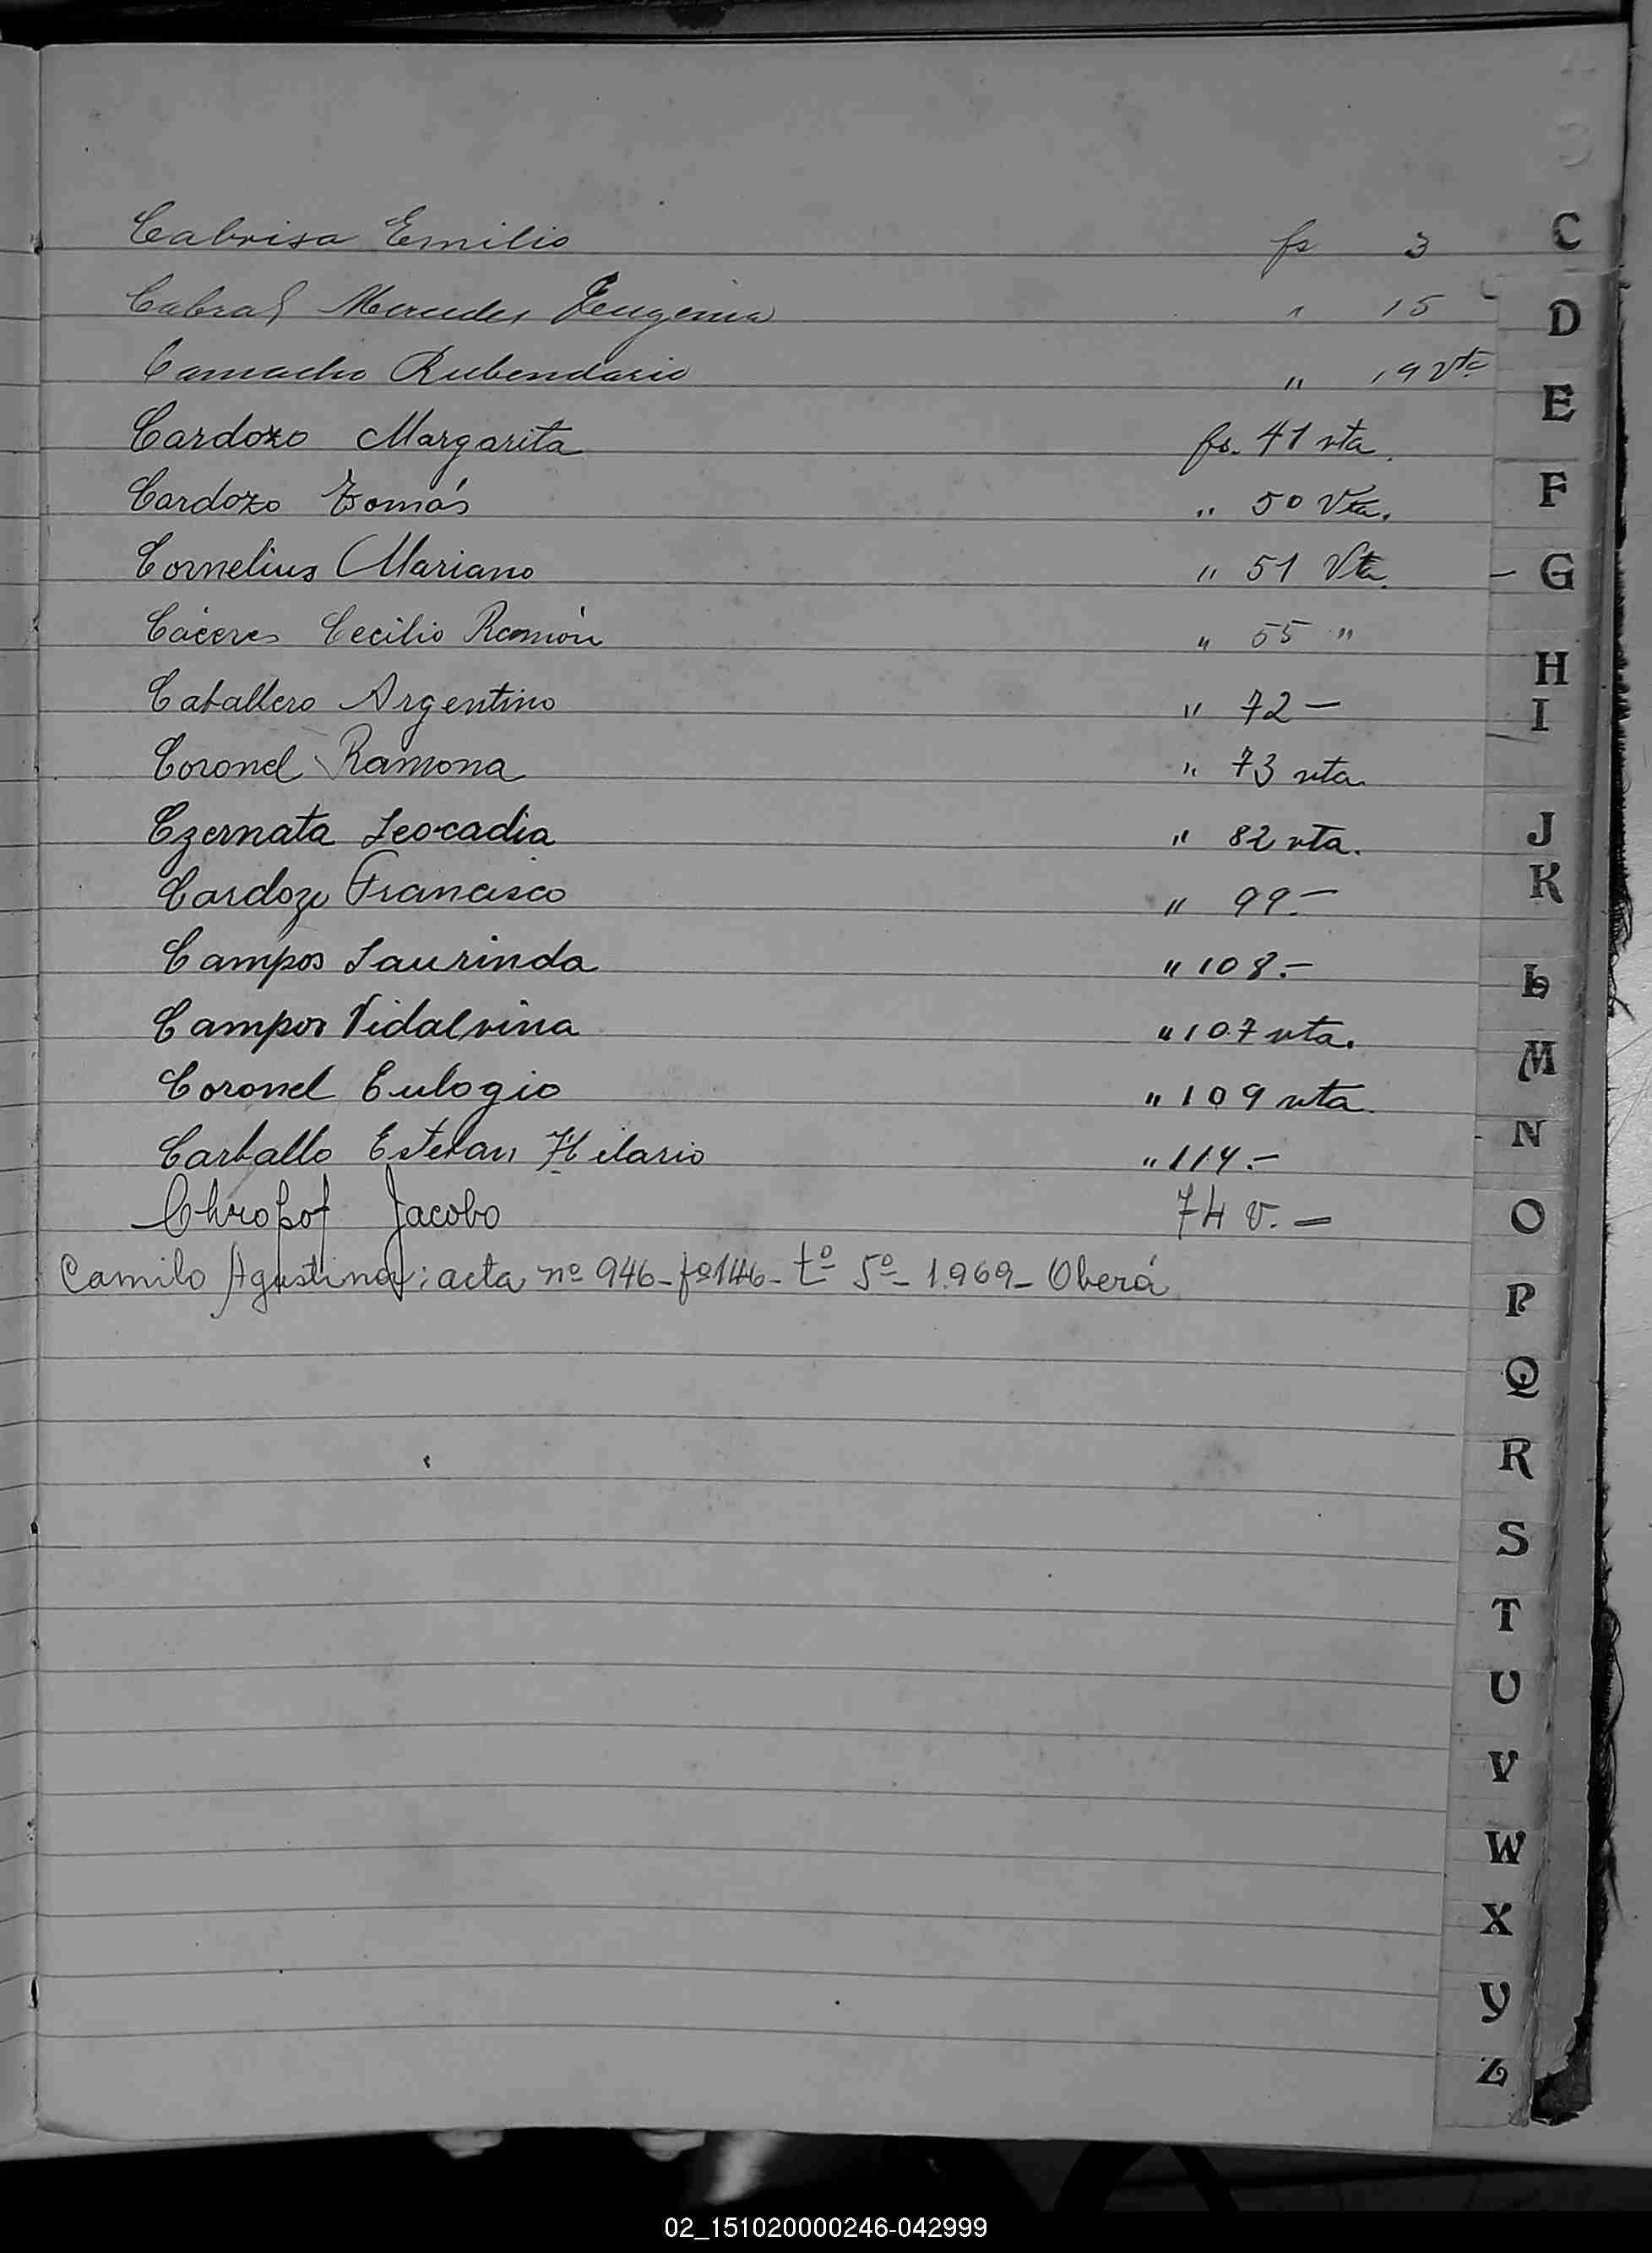 Cabrisa Emilio fs 3
Cabral Mercedes Eugenia " 15
Camacho Rubendario " 19 vta
Cardozo Margarita fs. 41 vta.
Cardozo Tomás " 50 Vta.
Cornelius Mariano " 51 Vta.
Cáceres Cecilio Ramón " 55 "
Caballero Argentino " 72 —
Coronel Ramona " 73 vta.
Czernata Leocadia " 82 vta.
Cardozo Francisco " 99.—
Campos Laurinda " 108.—
Campos Vidalvina " 107 vta.
Coronel Eulogio " 109 vta.
Carballo Esteban Hilario " 114.—
Jacobo 74 v. —
Camilo Agustina: acta nº 946- fº 146- tº 5º- 1.969- Oberá
C
D
E
F
G
H
I
J
K
L
M
N
O
P
Q
R
S
T
U
V
W
X
Y
Z
02_151020000246-042999